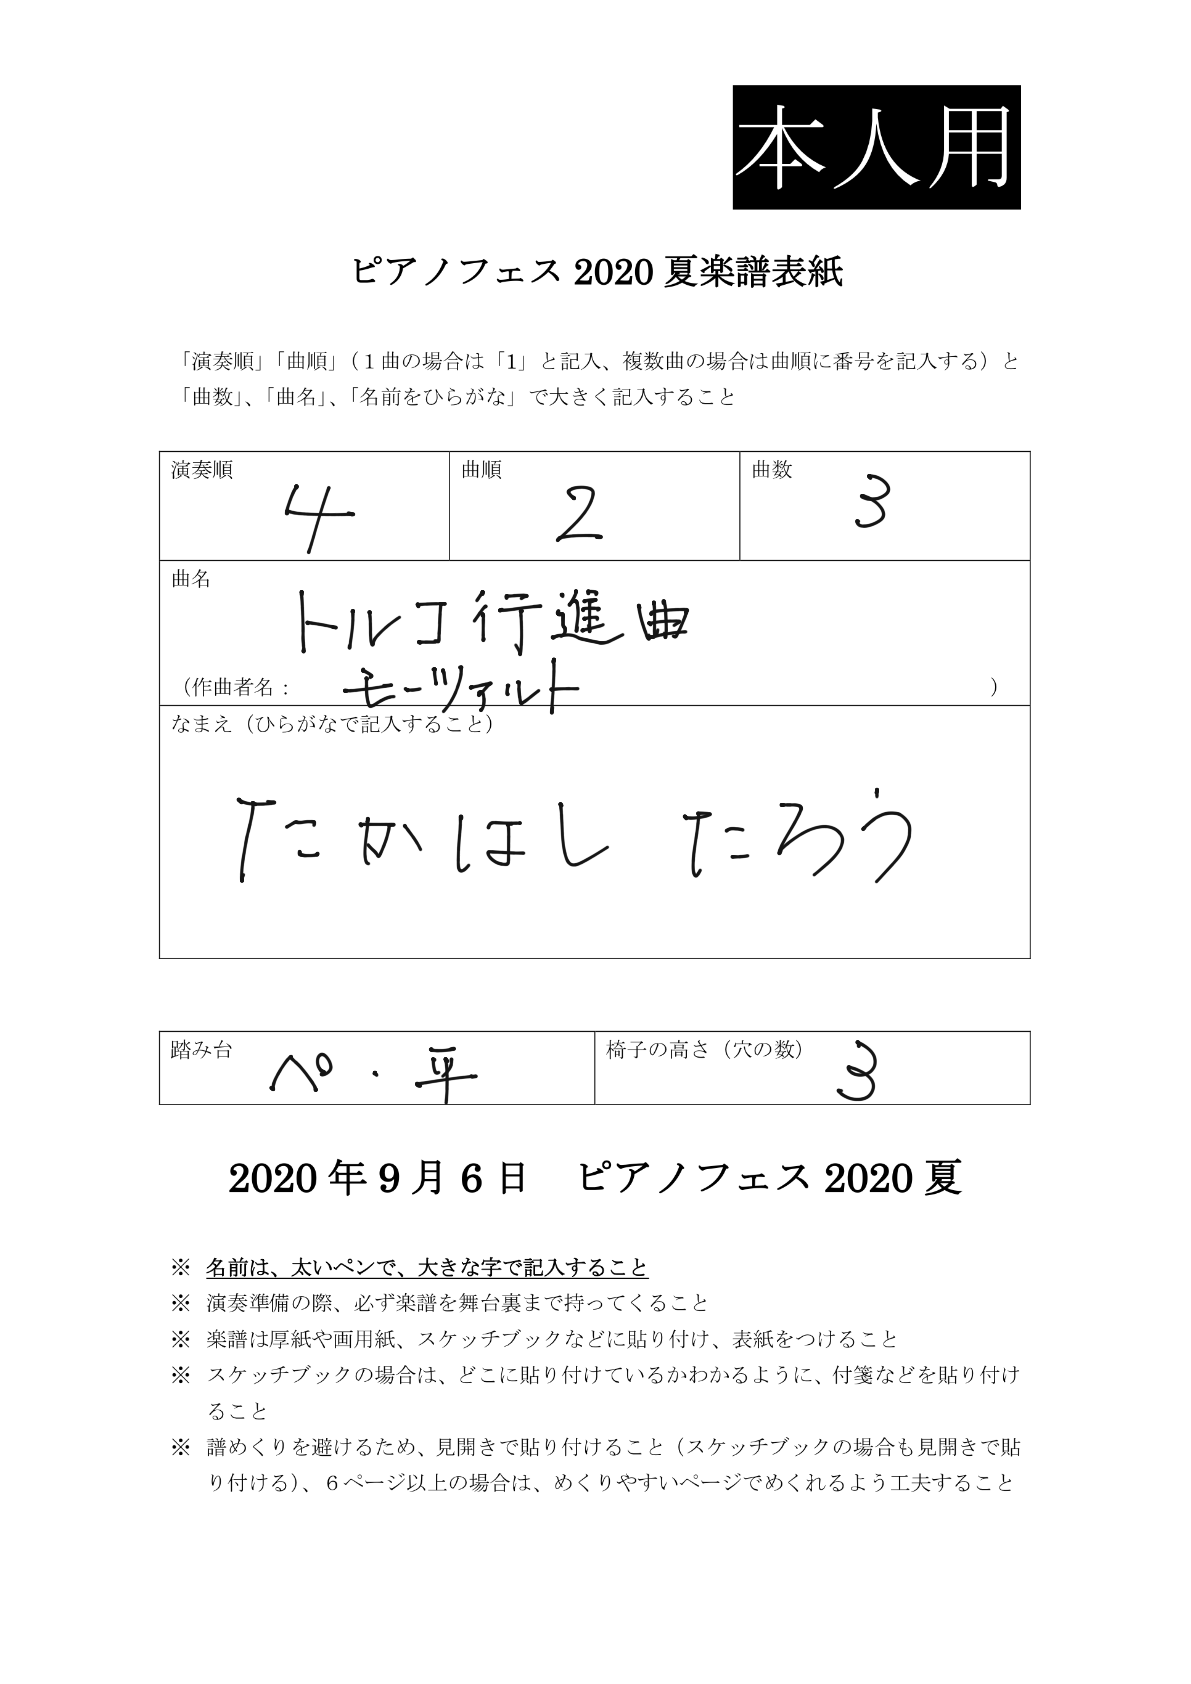 本人用
ピアノフェス 2020 夏楽譜表紙
「演奏順」「曲順」（１曲の場合は「1」と記入、複数曲の場合は曲順に番号を記入する）と
「曲数」、「曲名」、「名前をひらがな」で大きく記入すること
演奏順 4 曲順 2 曲数 3
曲名
トルコ行進曲
（作曲者名： モーツァルト ）
なまえ（ひらがなで記入すること）
たかはし たろう
踏み台 ペ・平 椅子の高さ（穴の数） 3
2020 年 9 月 6 日 ピアノフェス 2020 夏
※ 名前は、太いペンで、大きな字で記入すること
※ 演奏準備の際、必ず楽譜を舞台裏まで持ってくること
※ 楽譜は厚紙や画用紙、スケッチブックなどに貼り付け、表紙をつけること
※ スケッチブックの場合は、どこに貼り付けているかわかるように、付箋などを貼り付け
ること
※ 譜めくりを避けるため、見開きで貼り付けること（スケッチブックの場合も見開きで貼
り付ける）、６ページ以上の場合は、めくりやすいページでめくれるよう工夫すること